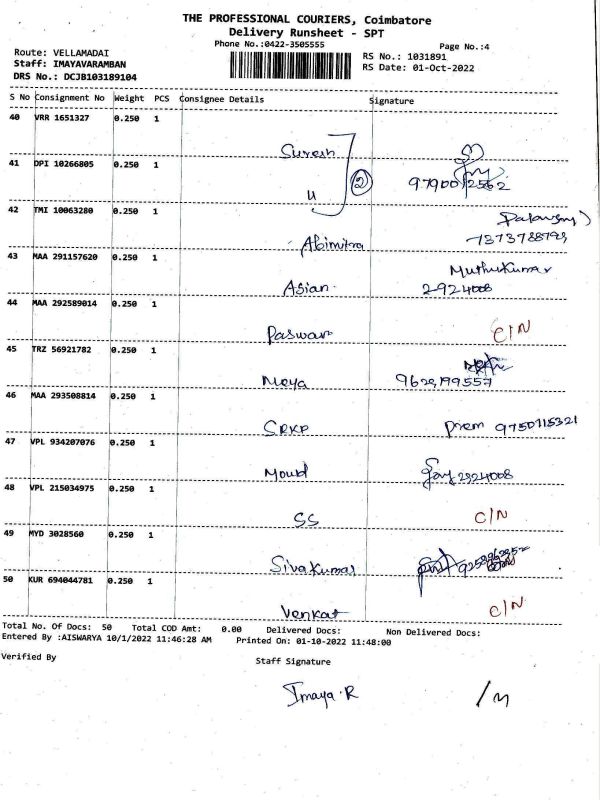 THE PROFESSIONAL COURIERS, Coimbatore
Delivery Runsheet - SPT
Phone No.:0422-3505555
Page No.:4
Route: VELLAMADAI
Staff: IMAYAVARAMBAN
DRS No.: DCJB103189104
RS No.: 1031891
RS Date: 01-Oct-2022
S No Consignment No Weight PCS Consignee Details Signature
40 VRR 1651327 0.250 1
Suresh
41 DPI 10266805 0.250 1
② 
42 TMI 10063280 0.250 1
Abimitra
43 MAA 291157620 0.250 1
Muthukumar
Asian 2924008
44 MAA 292589014 0.250 1
Paswan C/N
45 TRZ 56921782 0.250 1
Meya 9629199557
46 MAA 293508814 0.250 1
SRKP Prem 9750115321
47 VPL 934207076 0.250 1
Mould 2924008
48 VPL 215034975 0.250 1
SS C/N
49 MYD 3028560 0.250 1
Sivakumar
50 KUR 694044781 0.250 1
Venkat C/N
Total No. Of Docs: 50 Total COD Amt: 0.00 Delivered Docs: Non Delivered Docs:
Entered By :AISWARYA 10/1/2022 11:46:28 AM Printed On: 01-10-2022 11:48:00
Verified By
Staff Signature
Imaya.R